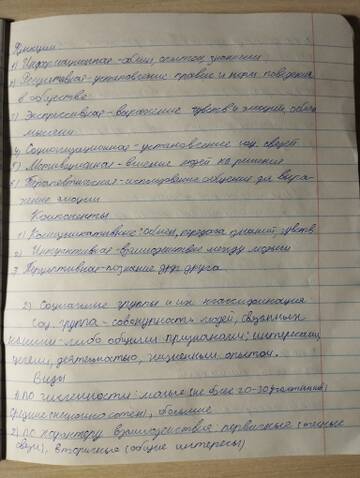 Функции
1) Информационная - обмен, знаниями
2) Регулятивная - установление правил и норм поведения
в обществе
3) Экспрессивная - выражение чувств и эмоций, обмен
мыслями
4) Социализационная - установление соц. связей
5) Мотивационная - влияние людей на решения
6) Терапевтическая - использование общения для выра-
жение эмоции
Компоненты
1) Коммуникативные: обмен, передача знаний, чувств
2) Интерактивная - взаимодействие между людьми
3 Перцептивная - познание друг друга
2) Социальные группы и их классификация
Соц. группа - совокупность людей, связанных
какими-либо общими признаками: интересами,
целями, деятельностью, жизненным опытом.
Виды
1) По численности: малые (не более 20-30 участников)
средние (несколько сотен), большие
2) По характеру взаимодействия: первичные (тесные
связи), вторичные (общие интересы)